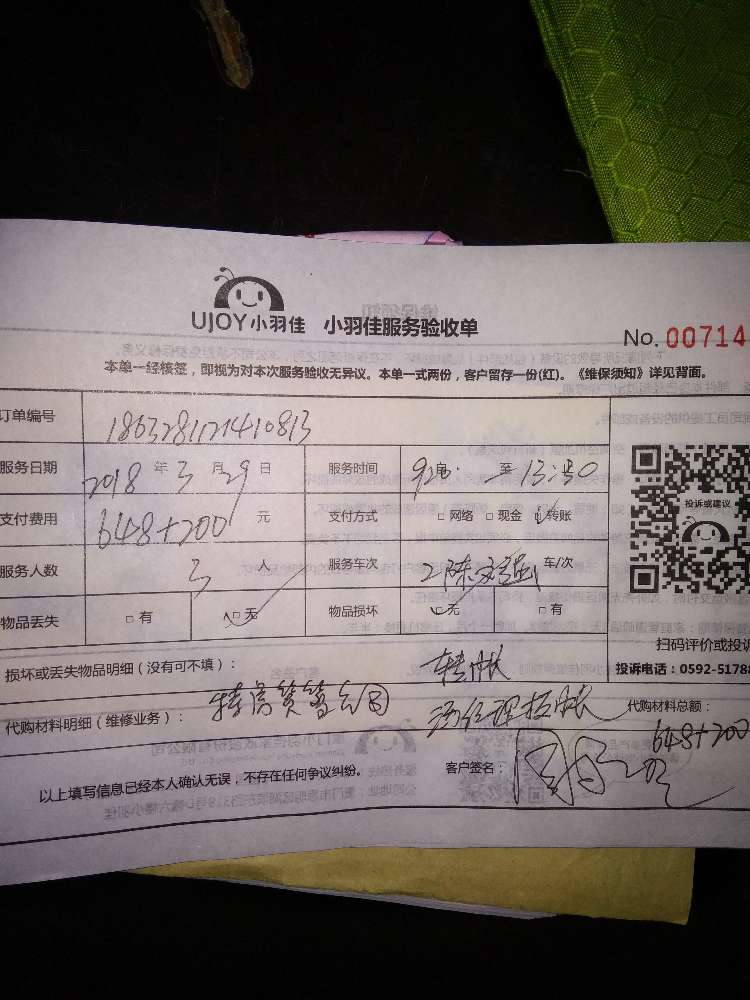 UJOY小羽佳 小羽佳服务验收单
No. 00714
本单一经核签，即视为对本次服务验收无异议。本单一式两份，客户留存一份(红)。《维保须知》详见背面。
订单编号 1863281121410813
服务日期 2018 年 3 月 29 日 服务时间 至
支付费用 648+200 元 支付方式 □ 网络 □ 现金 □ 转账
投诉或建议
服务人数 3 人 服务车次 2 车/次
物品丢失 □ 有 □ 无 物品损坏 □ 无 □ 有
扫码评价或投诉
损坏或丢失物品明细（没有可不填）： 转帐 投诉电话：0592-51788
代购材料明细（维修业务）： 代购材料总额：
648+200
以上填写信息已经本人确认无误，不存在任何争议纠纷。 客户签名：